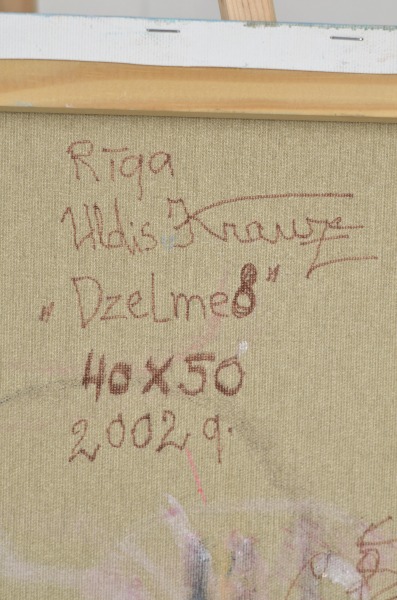 Rīga
Uldis Krauze
„Dzelme8"
40x50
2002g.